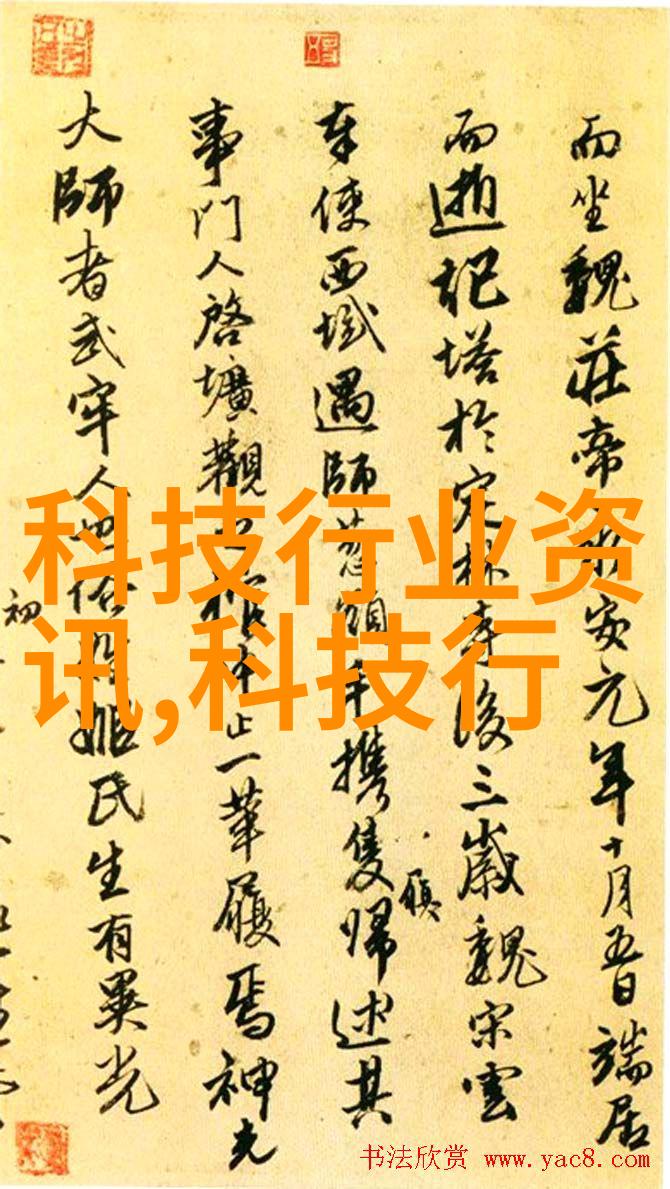 而坐魏莊帝永安元年十月五日端居
而逝記塔於定林寺後三歲魏宋雲
奉使西域遇師葱領手攜隻歸述其
履
事門人啓壙觀之棺中止一革履焉神光
大師者武牢人也俗姓姬氏生有異光
初
科技行业资
讯,科技行
书法欣赏 www.yac8.com